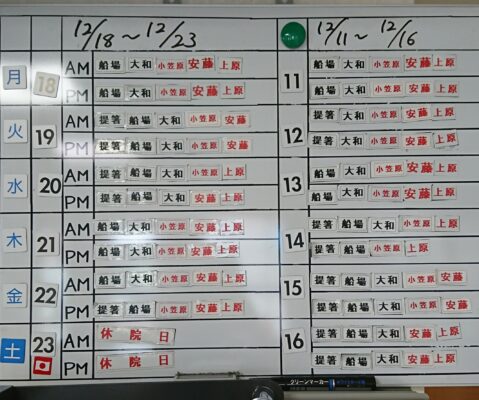 12/18～12/23 12/11～12/16
月 18 AM 船場 大和 小笠原 安藤 上原 11 船場 大和 小笠原 安藤 上原
PM 船場 大和 小笠原 安藤 上原 船場 大和 小笠原 安藤 上原
火 19 AM 提箸 船場 大和 小笠原 安藤 12 提箸 船場 大和 小笠原 安藤
PM 提箸 船場 大和 小笠原 安藤 提箸 船場 大和 安藤 上原
水 20 AM 提箸 船場 大和 安藤 上原 13 船場 大和 小笠原 安藤 上原
PM 提箸 船場 大和 安藤 上原 船場 大和 小笠原 安藤 上原
木 21 AM 船場 大和 小笠原 安藤 上原 14 提箸 船場 大和 小笠原 上原
PM 船場 大和 小笠原 安藤 上原 提箸 船場 小笠原 上原
金 22 AM 船場 大和 小笠原 安藤 上原 15 船場 大和 小笠原 安藤 上原
PM 提箸 船場 小笠原 安藤 上原 提箸 船場 小笠原 安藤 上原
土 23 AM 休 院 日 16 提箸 船場 大和 安藤 上原
PM 休 院 日 提箸 船場 大和 安藤 上原